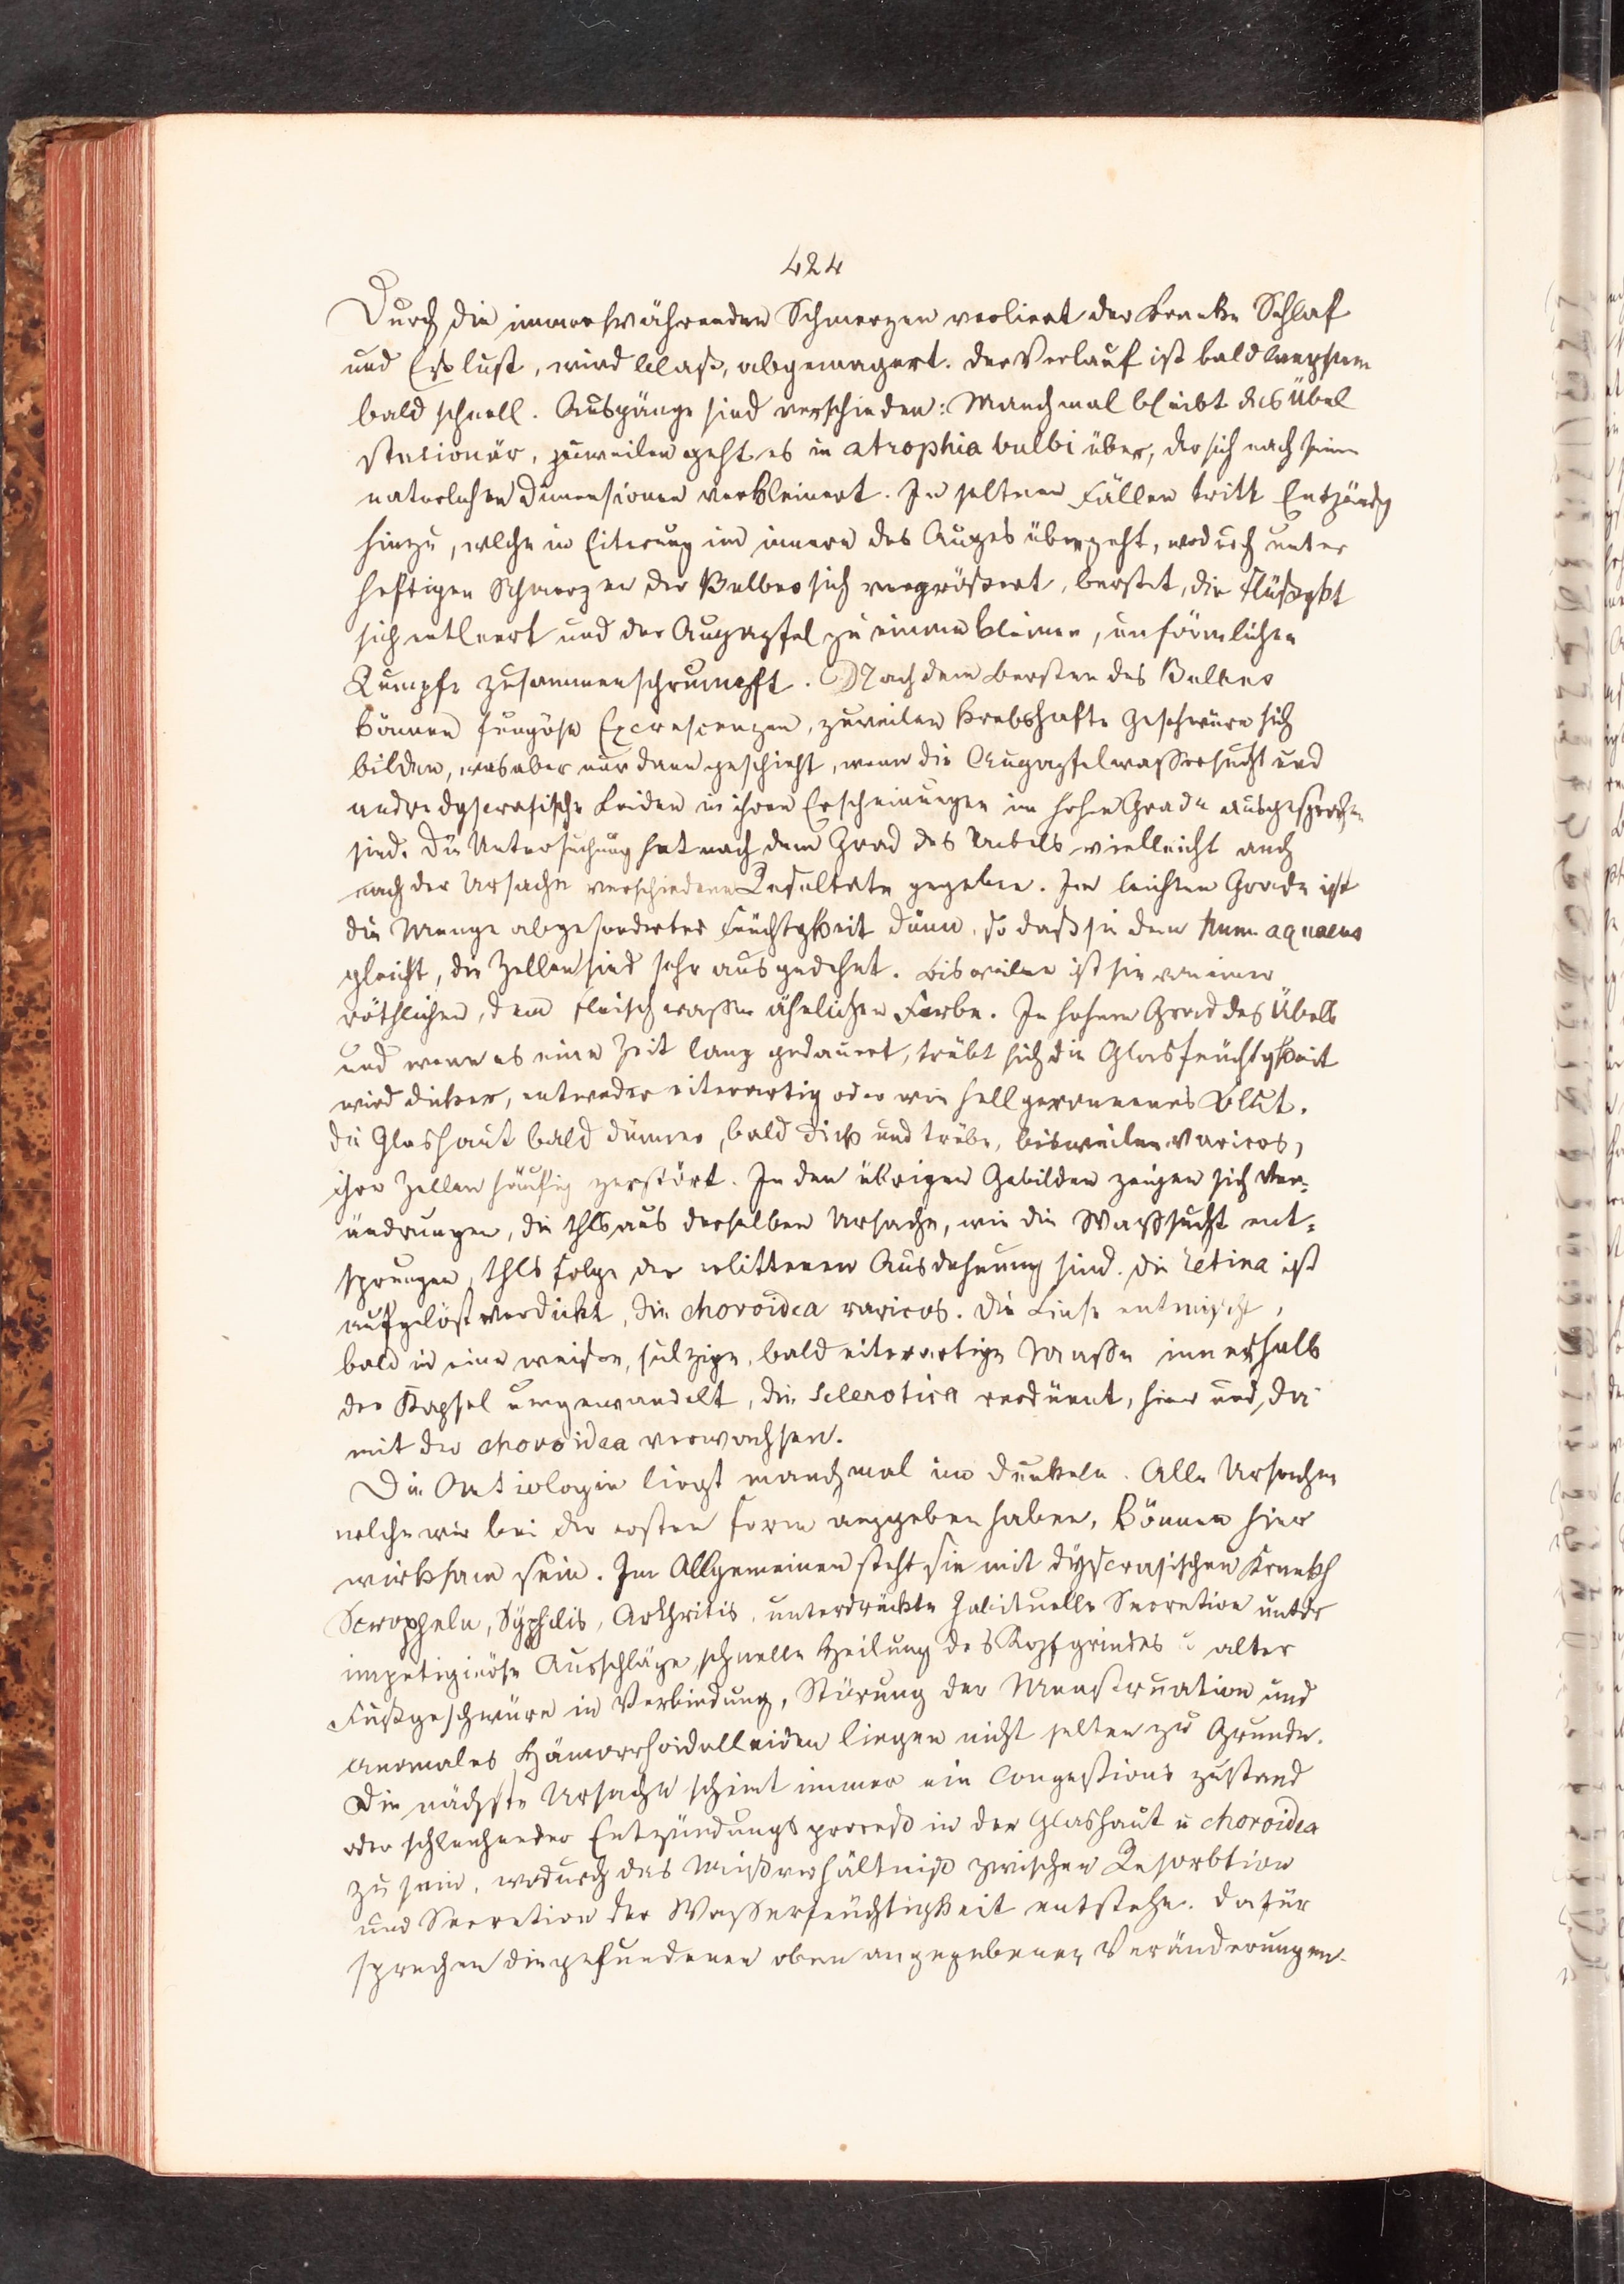 424
Durch die immerwährenden Schmerzen verliert der Kranke Schlaf
und Eßlust, wird blaß, abgemagert. Der Verlauf ist bald langsam
bald schnell. Ausgänge sind verschieden: Manchmal bleibt das Übel
stationär, zuweilen geht es in atrophia bulbi über, der sich nach seinen
naturlichen Dimensionen verkleinert. In seltnen Fällen tritt Entzündg
hinzu, welche in Eiterung im innern des Auges übergeht, wodurch unter
heftigen Schmerzen der Bulbus sich vergrößert, berstet, die Flüßgkt
sich entleert und der Augapfel zu einem kleinen, unförmlichen
Rumpfe zusammenschrumpft. Nach dem Bersten des Bulbus
können fungöse Excrescenzen, zuweilen krebshafte Geschwüre sich
bilden, was aber nur dann geschieht, wenn die Augapfelwassersucht und
andre dyscrasische Leiden in ihren Erscheinungen im hohen Grade ausgesprochen
sind. Die Untersuchung hat nach dem Grad des Uebels vielleicht auch
nach der Ursache verschiedene Resultate gegeben. Im leichten Grade ist
die Menge abgesonderter Feuchtgkeit dünn, so daß sie dem hum. aquaeus
gleicht, die Zellen sind sehr ausgedehnt. Bisweilen ist sie von einer
röthlichen, dem Fleischwasser ähnlichen Farbe. In hohem Grad des Übels
und wenn es eine Zeit lang gedauert, trübt sich die Glasfeuchtgkeit
wird dicker, entweder eiterartig oder wie hell geronnenes Blut.
Die Glashaut bald dünner, bald dick und trübe, bisweilen varicos,
ihre Zellen häufig zerstört. In den übrigen Gebilden zeigen sich Ver-
ändrungen, die thls aus derselben Ursache, wie die Waßsucht ent-
sprungen, thls Folge der erlittenen Ausdehnung sind. Die retina ist
aufgelöst verdickt, die choroidea varicos. Die Linse entmischt,
bald in eine weiche, sulzige, bald eiterartige Masse innerhalb
der Kapsel umgewandelt, die Sclerotica verdünnt, hier und da
mit der choroidea verwachsen.
Die Aetiologie liegt manchmal im Dunkeln. Alle Ursachen
welche wir bei der ersten Form angegeben haben, können hier
wirksam sein. Im Allgemeinen steht sie mit dyscrasischen Krankh
Scropheln, Syphilis, Arthritis, unterdrückte habituelle Secretion unter
impetiginöse Ausschläge, schnelle Heilung des Kopfgrindes u alter
Fußgeschwüre in Verbindung, Störung der Menstruation und
anomales Hämorrhoidalleiden liegen nicht selten zu Grunde.
Die nächste Ursache scheint immer ein Congestions zustand
oder schleichender Entzündungsproceß in der Glashaut u choroidea
zu sein, wodurch das Mißverhältniß zwischen Resorbtion
und Secretion der Wasserfeuchtigkeit entstehe. Dafür
sprechen die gefundenen oben angegebenen Veränderungen.